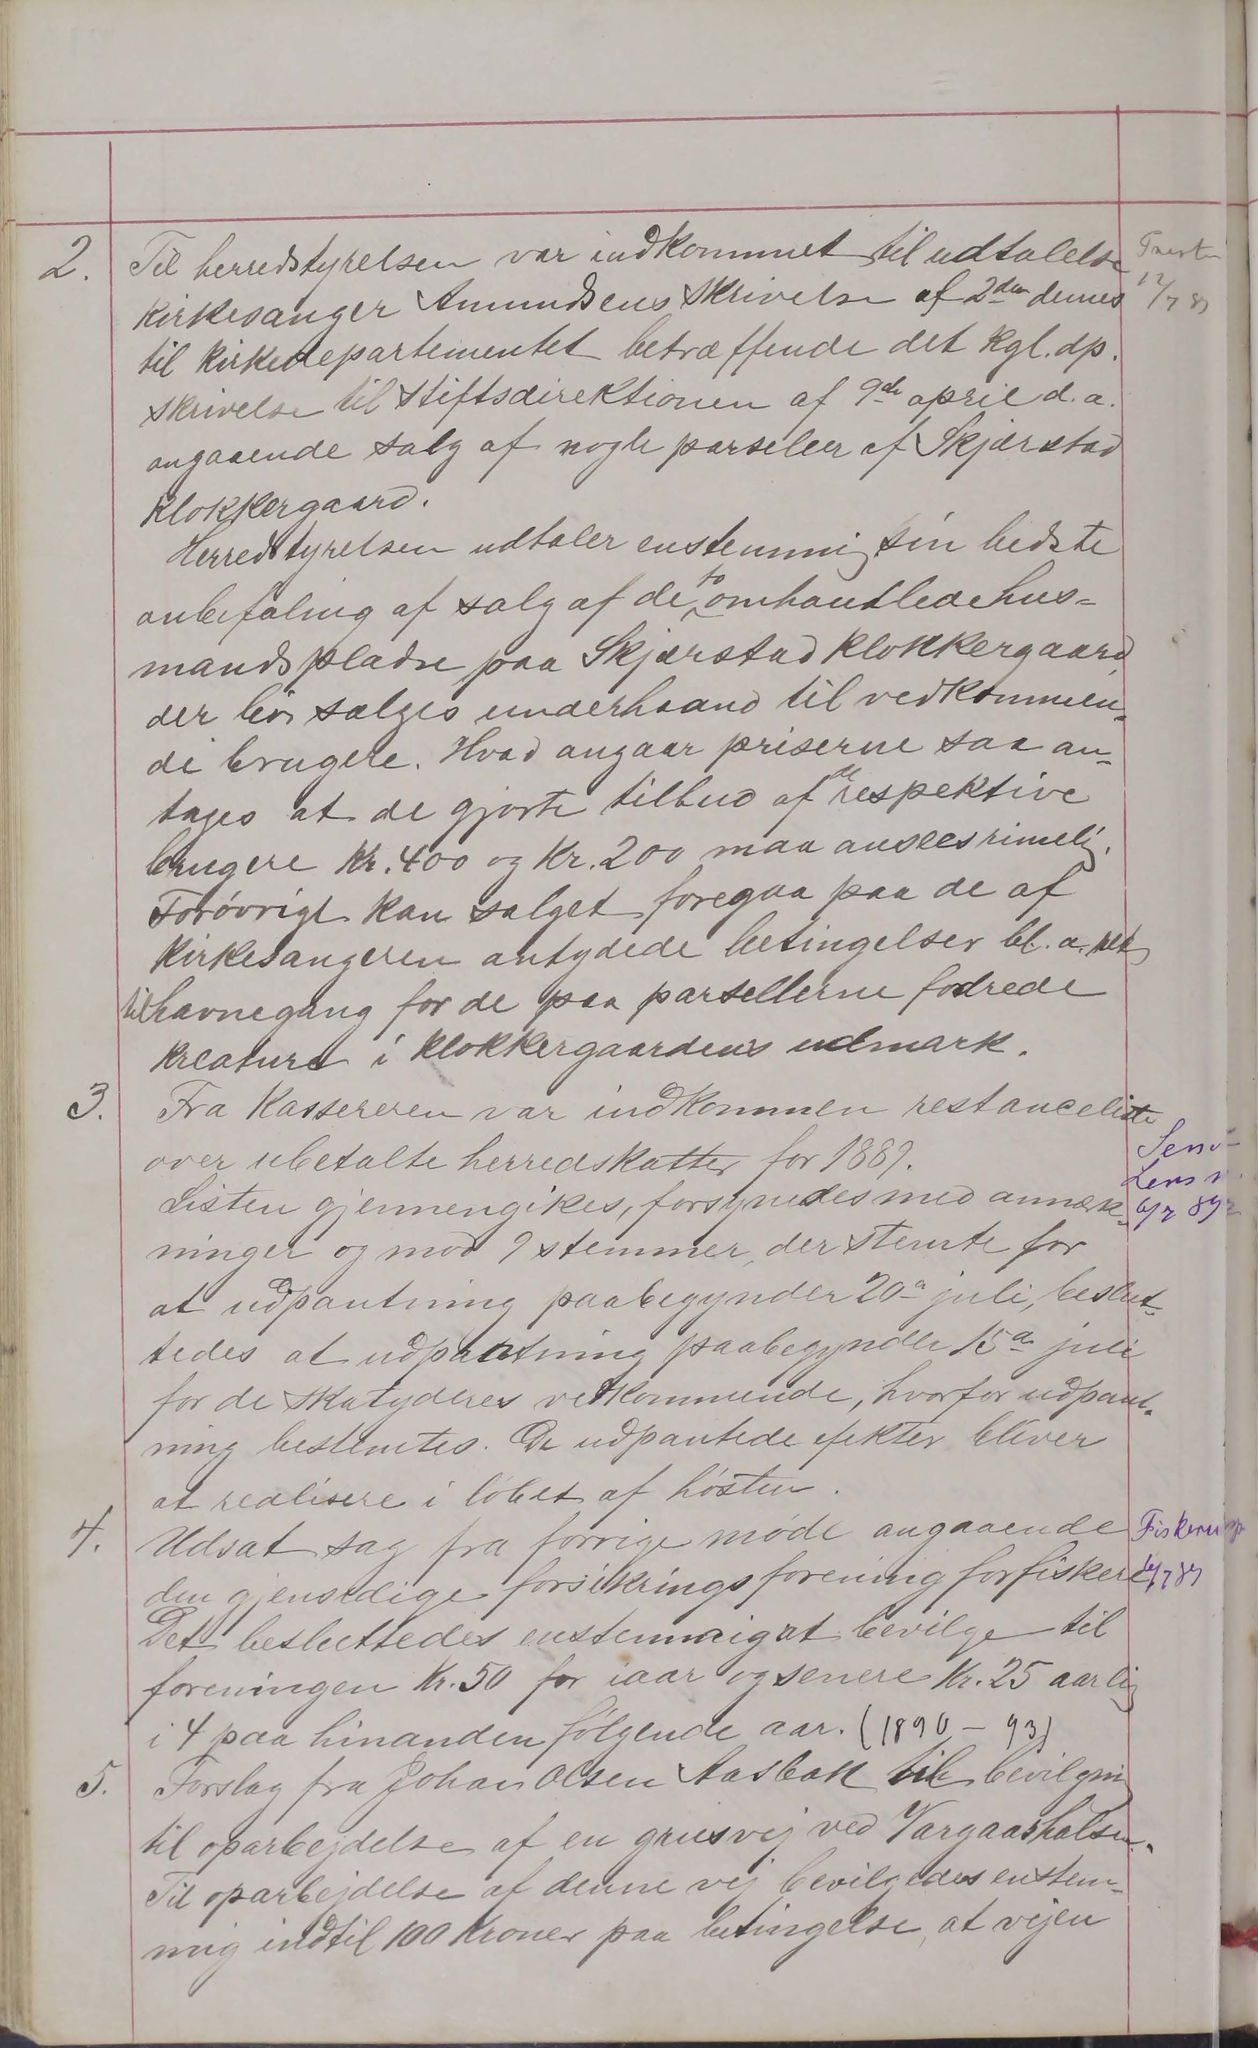 2. Til herredstyrelsen var indkommet til udtalelse
kirkesanger Amundsens skrivelse af 2den dennes
12/7 89
til kirkedepartementet betræffende det kgl. dp.
skrivelse til stiftsdirektionen af 9de april d.a.
angaaende salg af nogle parseler af Skjærstad
klokkergaard.
Herredstyrelsen udtaler enstemmig sin bedste
anbefaling af salg af de to omhandlede hus=
mandspladse paa Skjærstad klokkergaard
der bør sælges underhaand til vedkommen=
de brugere. Hvad angaar priserne saa an=
tages at de gjorte tilbud af de respektive
brugere Kr. 400 og Kr. 200 maa ansees rimelig.
Forøvrigt kan salget foregaa paa de af
kirkesangeren antydede betingelser bl. a. ret
til havnegang for de paa parsellerne fødrede
kreature i klokkergaardens udmark.
3. Fra kassereren var indkommen restanceliste
over ubetalte herredskatter for 1889.
Listen gjennemgikes, forsynedes med anmærk=
6/7 89
ninger og mod 9 stemmer, der stemte for
at udpantning paabegynder 20de juli, beslut=
tedes at udpantning paabegynder 15de juli
for de skatyderes vedkommende, hvorfor udpant=
ning bestemtes. De udpantede efekter bliver
at realisere i løbet af høsten.
4. Udsat sag fra forrige møde angaaende
Fiskeri
den gjensidige forsikringsforening for fiskere.
6/7 89
Det besluttedes enstemmig at bevilge til
foreningen Kr. 50 for iaar og senere Kr. 25 aarlig
i 4 paa hinanden følgende aar. (1890 – 93)
5. Forslag fra Johan Olsen Aasbak til bevilgning
til oparbejdelse af en grusvej ved Vargaashalsen.
Til oparbejdelse af denne vej bevilgedes enstem=
mig indtil 100 kroner paa betingelse, at vejen